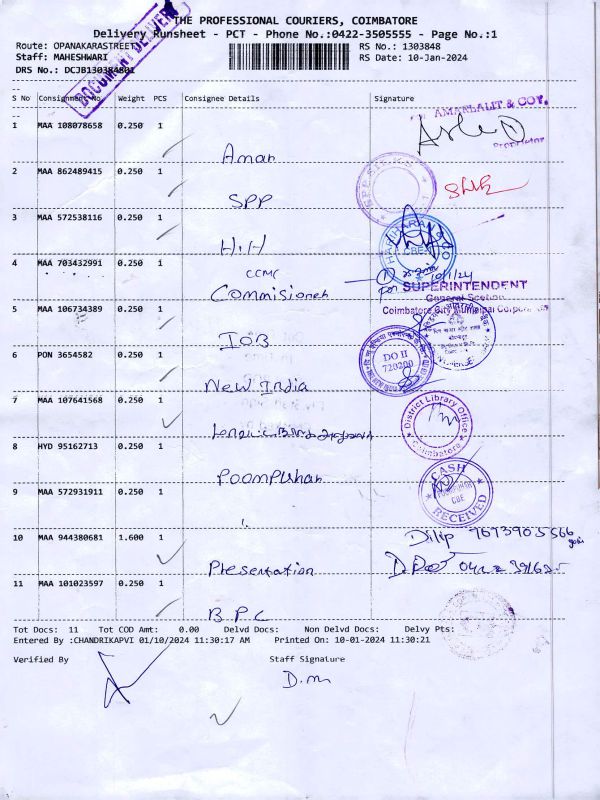 THE PROFESSIONAL COURIERS, COIMBATORE
Delivery Runsheet - PCT - Phone No.:0422-3505555 - Page No.:1
Route: OPANAKARASTREET
Staff: MAHESHWARI
RS No.: 1303848
RS Date: 10-Jan-2024
DRS No.: DCJB130384801
DOCUMENT DELIVERY
S No Consignment No. Weight PCS Consignee Details Signature
1 MAA 108078658 0.250 1
AMARLALIT & COY.
Proprietor
Aman
2 MAA 862489415 0.250 1
SPP
3 MAA 572538116 0.250 1
HIH
4 MAA 703432991 0.250 1
CCMC
Commisioner
10/1/24
SUPERINTENDENT
General Section
Coimbatore City Municipal Corporation
5 MAA 106734389 0.250 1
IOB
6 PON 3654582 0.250 1
DO II
720200
New India
7 MAA 107641568 0.250 1
District Library Office
Coimbatore
8 HYD 95162713 0.250 1
Poompuhar
CASH
CBE
RECEIVED
9 MAA 572931911 0.250 1
10 MAA 944380681 1.600 1
Dilip
Presentation
11 MAA 101023597 0.250 1
B.P.C
Tot Docs: 11 Tot COD Amt: 0.00 Delvd Docs: Non Delvd Docs: Delvy Pts:
Entered By :CHANDRIKAPVI 01/10/2024 11:30:17 AM Printed On: 10-01-2024 11:30:21
Verified By Staff Signature
D.m